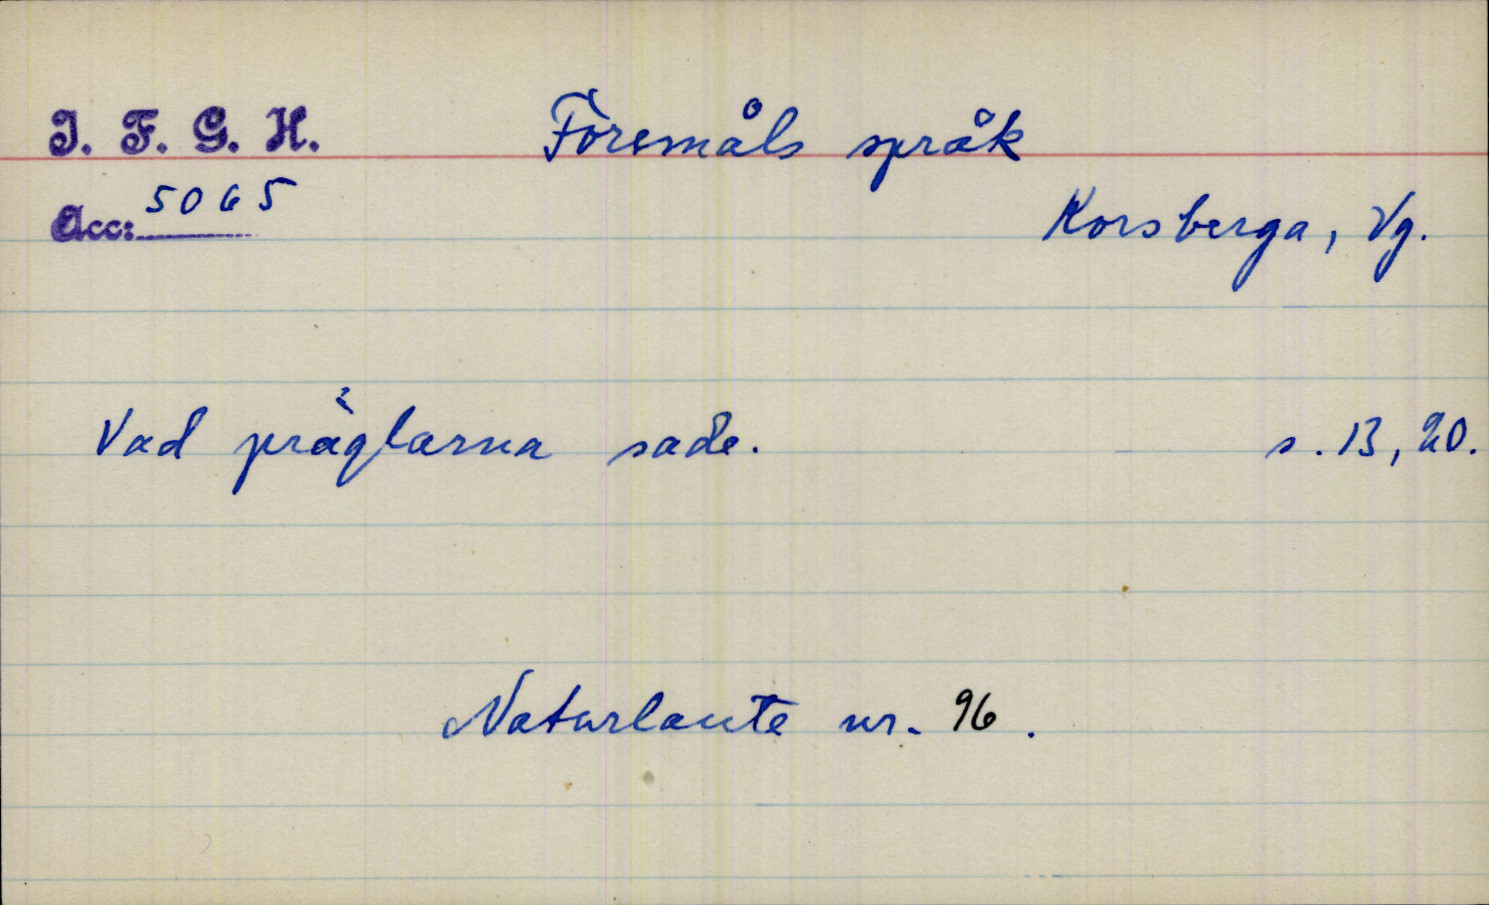 I. F. G. H.
Föremåls språk
Acc: 5065
Korsberga, Vg.
Vad präglarna sade. s. 13, 20.
Naturlaute nr. 96.